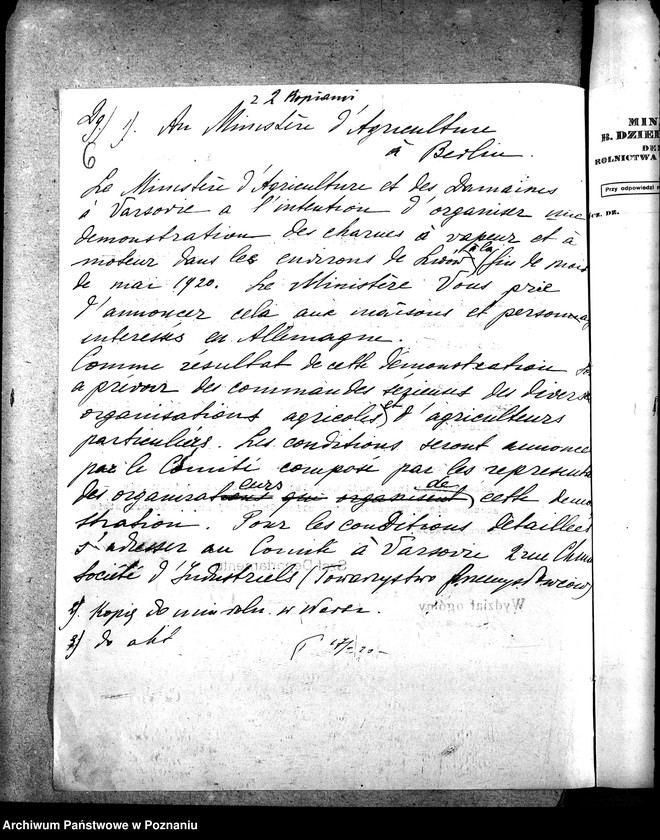 z 2 Kopiami
1). Au Ministère d'Agriculture
à Berlin.
Le Ministère d'Agriculture et des Domaines
à Varsovie a l'intention d'organiser une
demonstration des charues à vapeur et à
moteur dans les environs de Lwow à la fin de mois
de mai 1920. Le Ministère Vous prie
d'annoncer cela aux maisons et personnag
interessés en Allemagne.
Comme résultat de cette démonstration
a prevoir des commandes serieuses des divers
organisations agricoles et d'agriculteurs
particuliérs. Les conditions seront annonce
par le Comité composé par les represent
des organisateurs de cette demo
stration. Pour les conditions détaillées
s'adresser au Comité à Varsovie 2 rue
Société d'Industriels (Towarzystwo Przemysłowców)
2) Kopię do min. roln. w Warsz.
3) do akt
MIN
B. DZIEL
DE
ROLNICTWA
Przy odpowiedzi
CZ. DZ.
Wydział ogólny
Archiwum Państwowe w Poznaniu